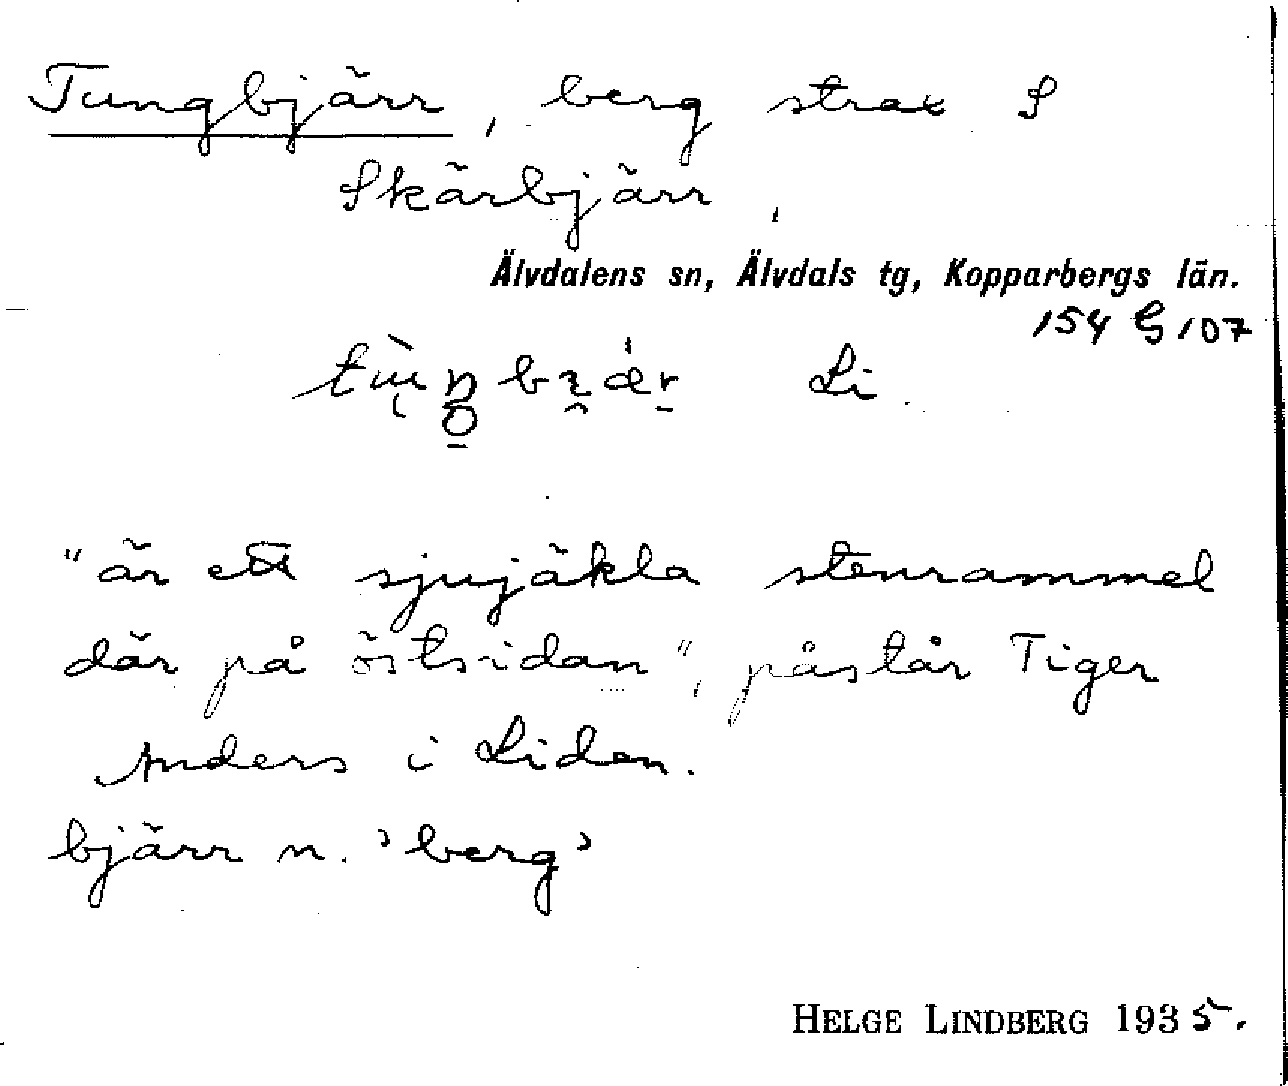 Tungbjärr, berg strax S
Skärbjärr,
Älvdalens sn, Älvdals tg, Kopparbergs län.
154 G 107
Li
"är ett sjujäkla stenrammel
där på östsidan", påstår Tiger
Anders i Liden.
bjärr n. 'berg'
HELGE LINDBERG 1935.